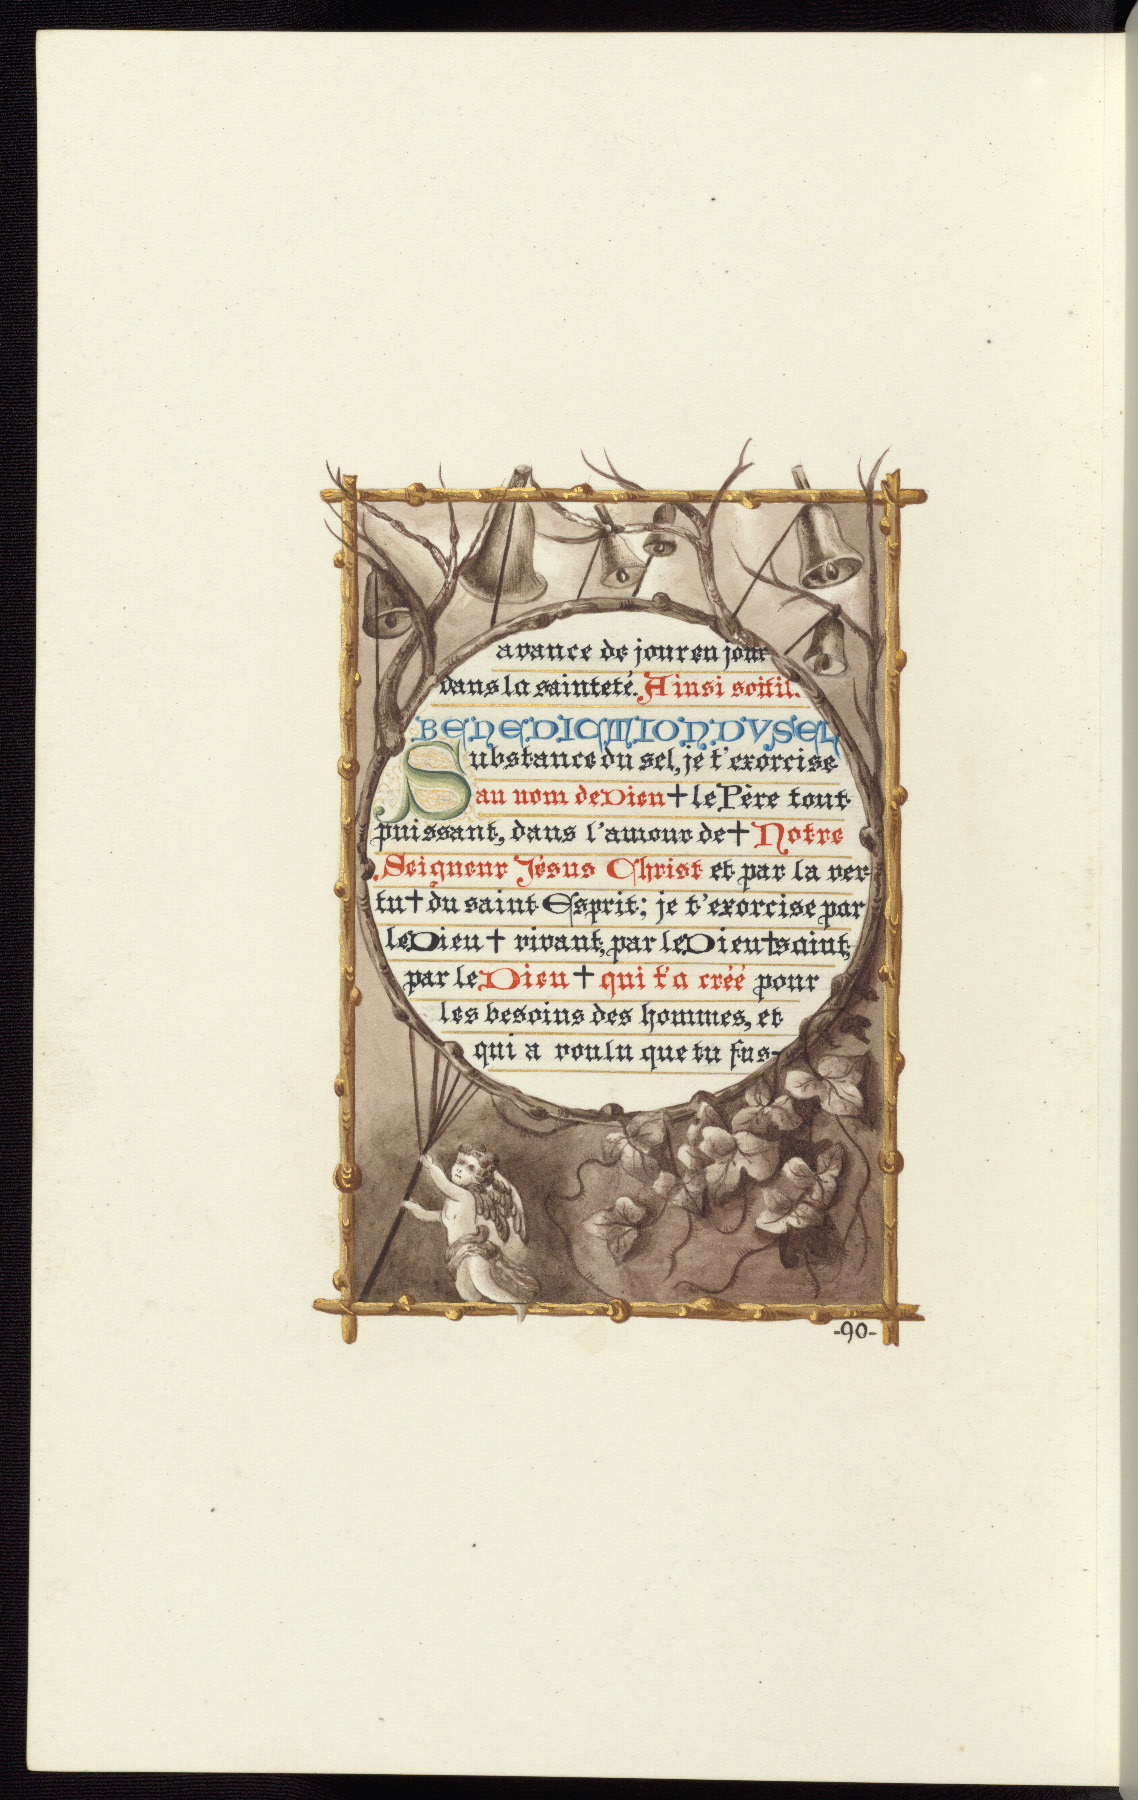 avance de jour en jour
dans la sainteté. Ainsi soitil.
BENEDICTION DV SEL
Substance du sel, je t'exorcise
au nom de Dieu † le Père tout
puissant, dans l'amour de † Notre
Seigneur Jésus Christ et par la ver
tu † du saint Esprit; je t'exorcise par
le Dieu † vivant, par le Dieu † saint,
par le Dieu † qui t'a créé pour
les besoins des hommes, et
qui a voulu que tu fus-
-90-